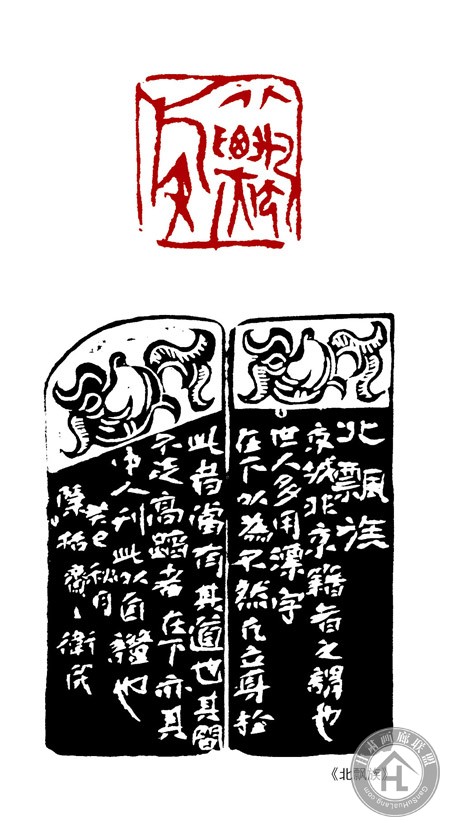 北飄族
京城非京籍者之謂也
世人多用漂字
在下以為不然凡立身於
此者當有其道也其間
不乏高蹈者在下亦其
中人刊此以自證也
癸巳秋月
齋
《北飘族》
甘肃画廊联盟
GanSuHuaLang.com